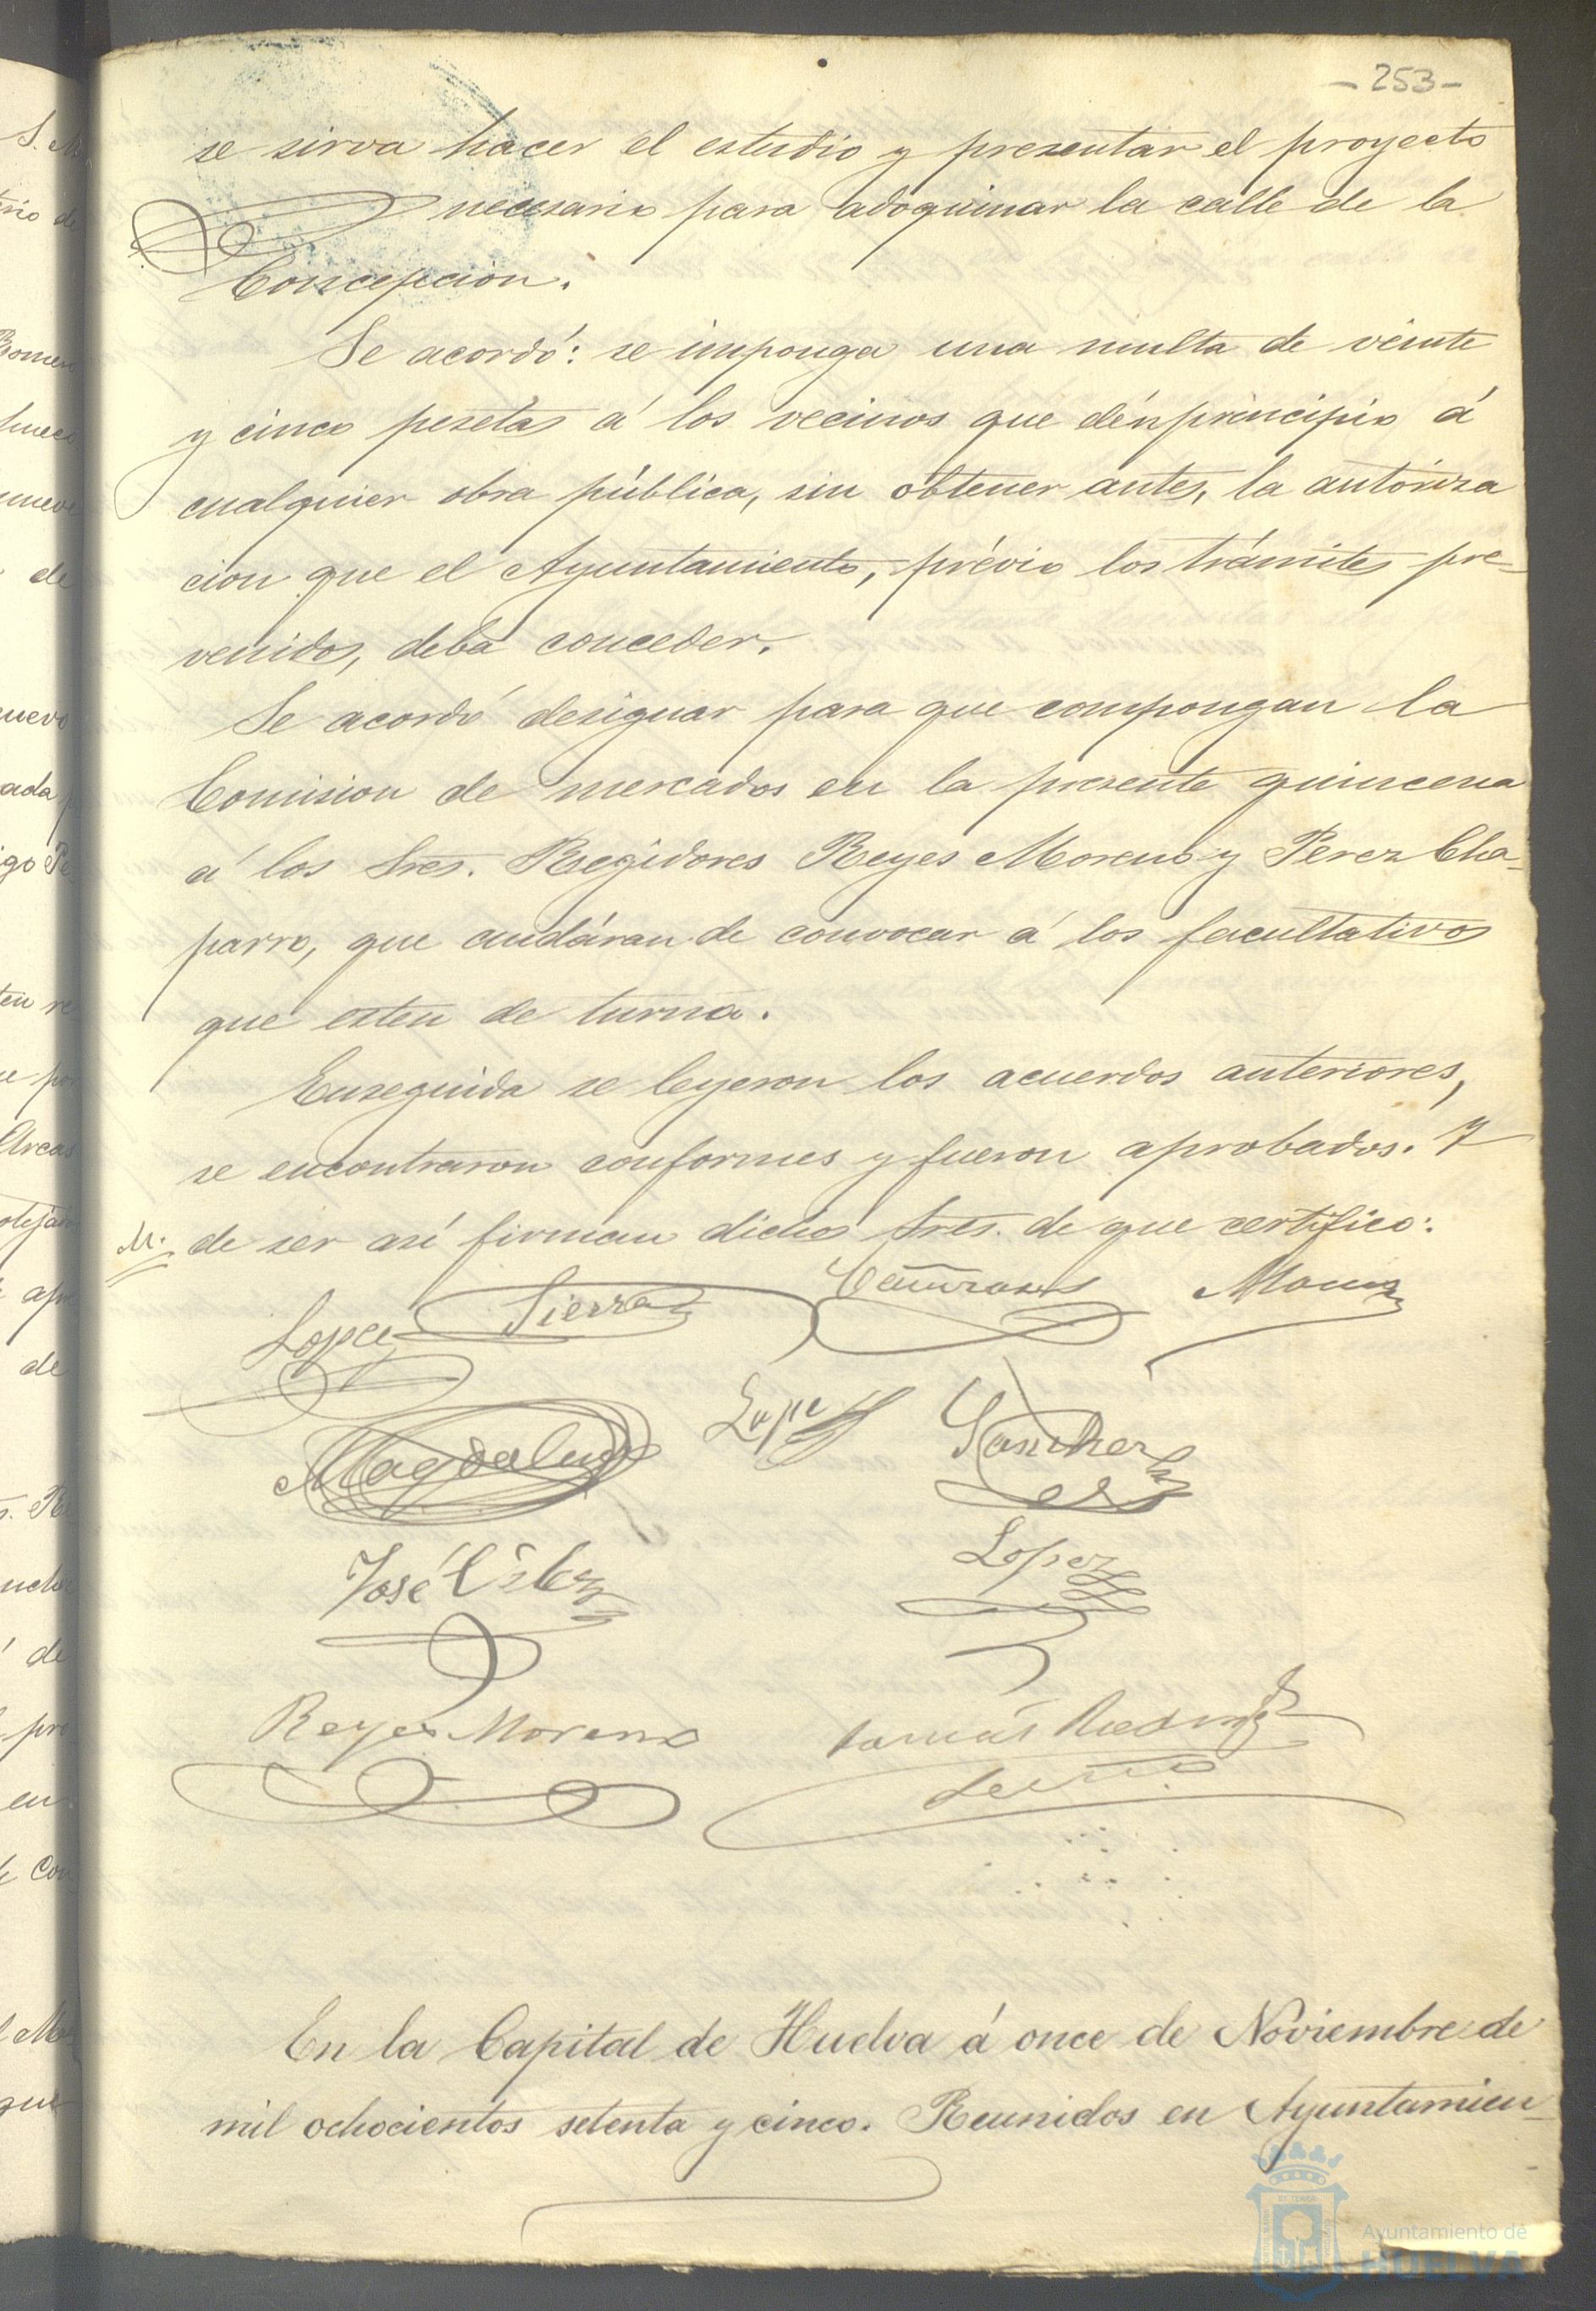 - 253 -
se sirva hacer el estudio y presentar el proyecto
necesario para adoquinar la calle de la
Concepcion.
Se acordó: se imponga una multa de veinte
y cinco pesetas á los vecinos que dén principio á
cualquier obra pública, sin obtener antes, la autoriza
cion que el Ayuntamiento, prévio los trámites pre-
venidos, deba conceder.
Se acordó designar para que compongan la
Comision de mercados en la presente quincena
á los Sres. Regidores Reyes Moreno y Perez Cha-
parro, que cuidáran de convocar á los facultativos
que esten de turno.
Enseguida se leyeron los acuerdos anteriores,
se encontraron conformes y fueron aprobados. Y
M. de ser así firman dichos Sres. de que certifico:
Lopez Sierra
Magdalena Lopez Sanchez
José Lopez
Reyes Moreno Tomás
En la Capital de Huelva á once de Noviembre de
mil ochocientos setenta y cinco. Reunidos en Ayuntamien-
Ayuntamiento de
HUELVA